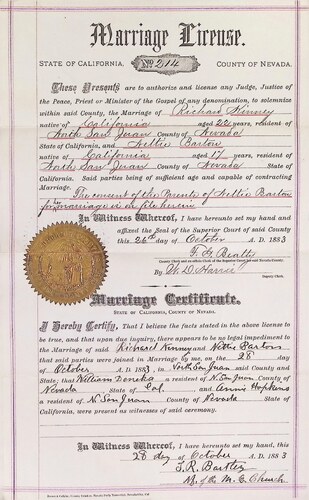 Marriage License.
STATE OF CALIFORNIA. No. 214 COUNTY OF NEVADA.
These Presents are to authorize and license any Judge, Justice of
the Peace, Priest or Minister of the Gospel of any denomination, to solemnize
within said County, the Marriage of Richard Kinney
native of California aged 22 years, resident of
North San Juan County of Nevada
State of California, and Nettie Barton
native of California aged 17 years, resident of
North San Juan County of Nevada State of
California. Said parties being of sufficient age and capable of contracting
Marriage. The consent of the Parents of Nettie Barton
for marriage is on file herein
In Witness Whereof, I have hereunto set my hand and
affixed the Seal of the Superior Court of said County
this 26th day of October A. D. 1883
County Clerk and ex-officio Clerk of the Superior Court
By W. D. Harris
Deputy Clerk.
Marriage Certificate.
STATE OF CALIFORNIA, COUNTY OF NEVADA.
I Hereby Certify, That I believe the facts stated in the above license
to be true, and that upon due inquiry, there appears to be no legal impediment
to the Marriage of said Richard Kinney and Nettie Barton
that said parties were joined in Marriage by me, on the 28 day
of October A. D. 1883, in North San Juan said County and
State; that William a resident of N. San Juan County of
Nevada State of Cal. and Annie Hopkins
a resident of N. San Juan County of Nevada State of
California, were present as witnesses of said ceremony.
In Witness Whereof, I have hereunto set my hand, this
28 day of October A. D. 1883
M. of the M. E. Church